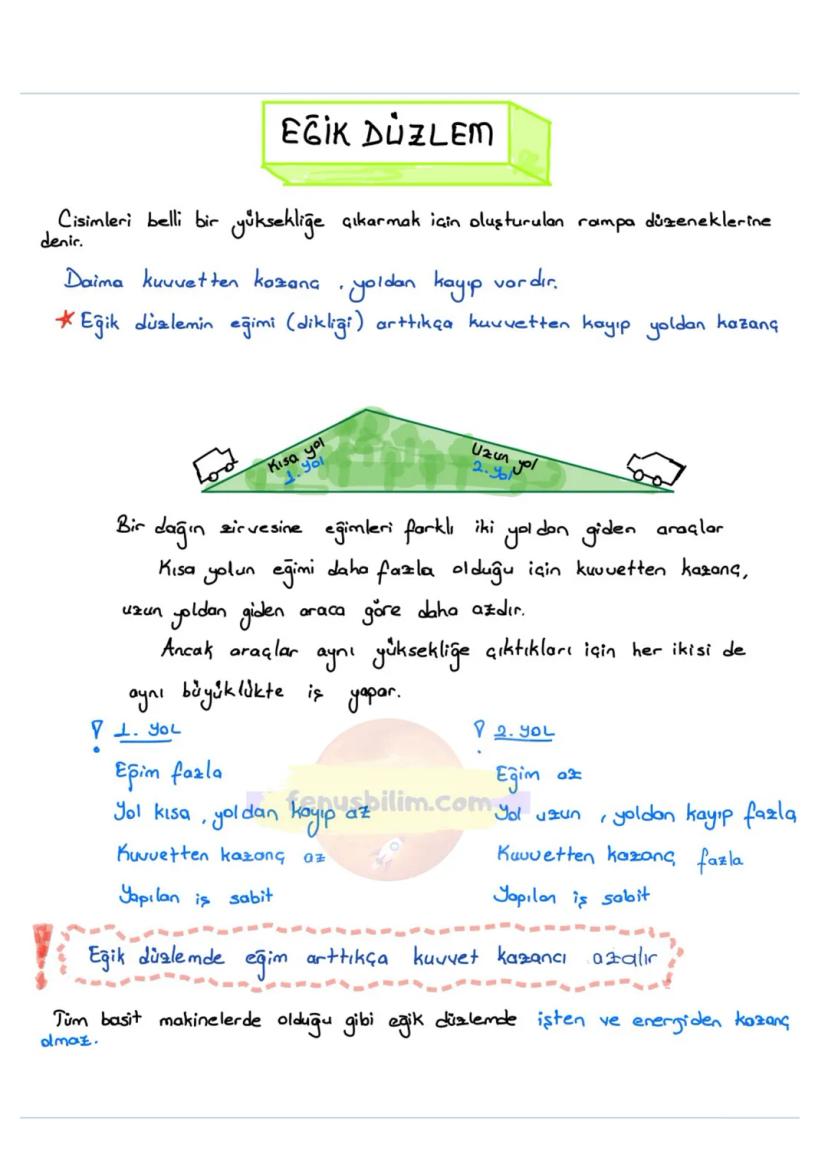 EĞİK DÜZLEM
Cisimleri belli bir yüksekliğe çıkarmak için oluşturulan rampa düzeneklerine
denir.
Daima kuvvetten kazanç , yoldan kayıp vardır.
* Eğik düzlemin eğimi (dikliği) arttıkça kuvvetten kayıp yoldan kazanç
Kısa yol
1. yol
Uzun yol
2. yol
Bir dağın zirvesine eğimleri farklı iki yoldan giden araçlar
Kısa yolun eğimi daha fazla olduğu için kuvvetten kazanç,
uzun yoldan giden araca göre daha azdır.
Ancak araçlar aynı yüksekliğe çıktıkları için her ikisi de
aynı büyüklükte iş yapar.
! 1. YOL
Eğim fazla
Yol kısa , yoldan kayıp az
Kuvvetten kazanç az
Yapılan iş sabit
! 2. YOL
Eğim az
Yol uzun , yoldan kayıp fazla
Kuvvetten kazanç fazla
Yapılan iş sabit
fenusbilim.com
! Eğik düzlemde eğim arttıkça kuvvet kazancı azalır
Tüm basit makinelerde olduğu gibi eğik düzlemde işten ve enerjiden kazanç
olmaz.